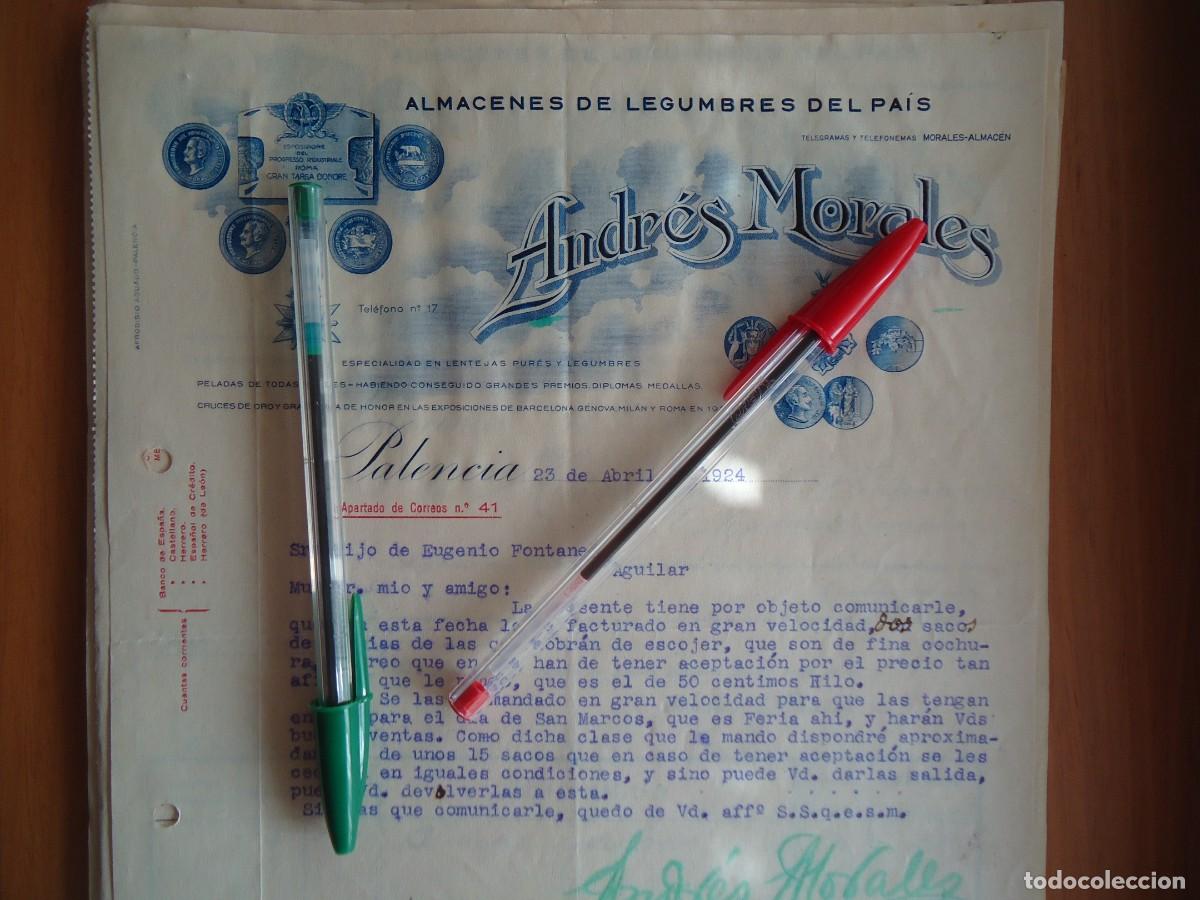 ALMACENES DE LEGUMBRES DEL PAÍS
TELEGRAMAS Y TELEFONEMAS MORALES-ALMACÉN
ESPOSIZIONE
DEL
PROGRESSO INDUSTRIALE
ROMA
GRAN TARGA D'ONORE
Andrés Morales
Teléfono nº 17
AFRODISIO AGUADO-PALENCIA
ESPECIALIDAD EN LENTEJAS PURÉS Y LEGUMBRES
PELADAS DE TODAS ES-HABIENDO CONSEGUIDO GRANDES PREMIOS, DIPLOMAS MEDALLAS,
CRUCES DE ORO Y GRA A DE HONOR EN LAS EXPOSICIONES DE BARCELONA, GENOVA, MILÁN Y ROMA EN 19
Palencia 23 de Abril 1924
Apartado de Correos n.º 41
Cuentas corrientes
Banco de España.
" Castellano.
" Herrero.
" Español de Crédito.
" Herrero (de León)
Sr. ijo de Eugenio Fontane
Aguilar
Mu r. mio y amigo:
La esente tiene por objeto comunicarle,
qu esta fecha l facturado en gran velocidad, dos sacos
de ias de las obrán de escojer, que son de fina cochu-
ra, reo que en han de tener aceptación por el precio tan
que le o, que es el de 50 centimos Hilo.
Se las mandado en gran velocidad para que las tengan
en para el dia de San Marcos, que es Feria ahi, y harán Vds
bu ventas. Como dicha clase que le mando dispondré aproxima-
da de unos 15 sacos que en caso de tener aceptación se les
ce en iguales condiciones, y sino puede Vd. darlas salida,
pue Vd. devolverlas a esta.
Si as que comunicarle, quedo de Vd. affº S.S.q.e.s.m.
Andrés Morales
todocoleccion